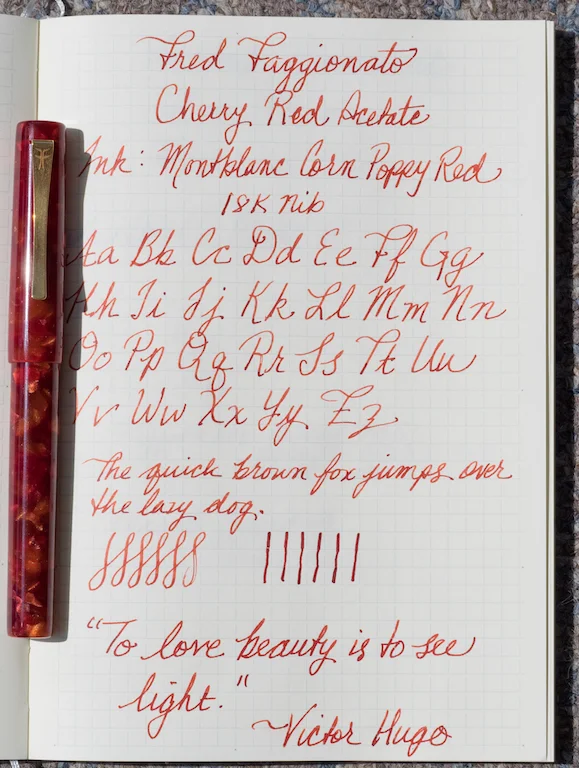 Fred Faggionato
Cherry Red Acetate
Ink: Montblanc Corn Poppy Red
18K nib
Aa Bb Cc Dd Ee Ff Gg
Hh Ii Jj Kk Ll Mm Nn
Oo Pp Qq Rr Ss Tt Uu
Vv Ww Xx Yy Zz
The quick brown fox jumps over
the lazy dog.
"To love beauty is to see
light."
~Victor Hugo